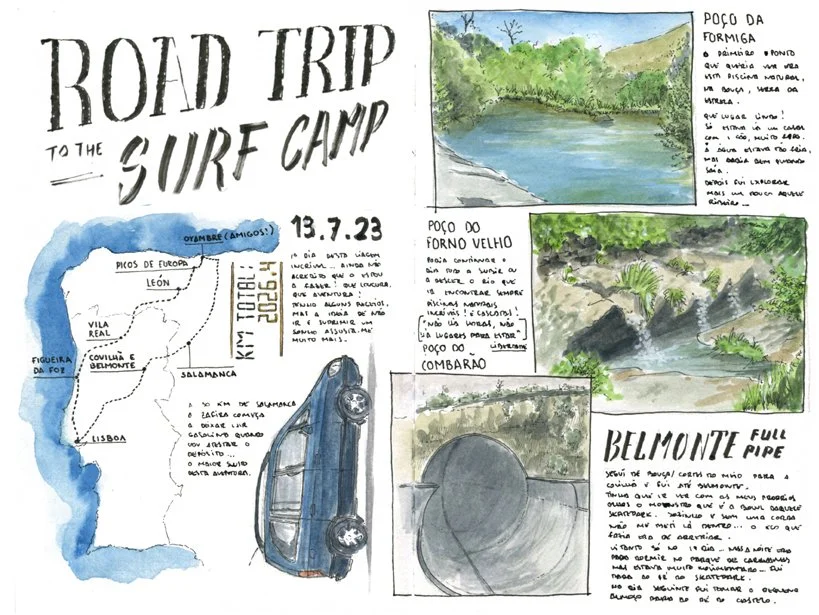 ROAD TRIP
TO THE
SURF CAMP
13.7.23
OYAMBRE (AMIGOS!)
PICOS DE EUROPA
LEÓN
VILA
REAL
FIGUEIRA
DA FOZ
COVILHÃ E
BELMONTE
SALAMANCA
LISBOA
KM TOTAL:
2026.4
1º DIA DESTA VIAGEM
INCRÍVEL... AINDA NÃO
ACREDITO QUE O ESTOU
A FAZER! QUE LOUCURA,
QUE AVENTURA!
TENHO ALGUNS RECEIOS,
MAS A IDEIA DE NÃO
IR E SUPRIMIR UM
SONHO ASSUSTA-ME
MUITO MAIS.
A 30 KM DE SALAMANCA
A ZAFIRA COMEÇA
A DEIXAR SAIR
GASOLINA QUANDO
VOU ATESTAR O
DEPÓSITO...
O MAIOR SUSTO
DESTA AVENTURA.
POÇO DA
FORMIGA
O PRIMEIRO PONTO
QUE QUERIA VER ERA
ESTA PISCINA NATURAL,
NA BOUÇA, SERRA DA
ESTRELA.
QUE LUGAR LINDO!
SÓ ESTAVA LÁ UM CASAL
COM 1 CÃO, MUITO
A ÁGUA ESTAVA TÃO FRIA,
MAS SABIA BEM QUANDO
SAÍA.
DEPOIS FUI EXPLORAR
MAIS UM POUCO AQUELE
RIBEIRO...
POÇO DO
FORNO VELHO
PODIA CONTINUAR O
DIA TODO A SUBIR OU
A DESCER O RIO QUE
IR ENCONTRAR SEMPRE
PISCINAS NATURAIS
INCRÍVEIS! E CASCATAS!
"NÃO HÁ HORAS, NÃO
HÁ LUGARES PARA ESTAR"
LIBERDADE
POÇO DO
COMBARÃO
BELMONTE FULL
PIPE
SEGUI DE BOUÇA/CORTES DO MEIO PARA A
COVILHÃ E FUI ATÉ BELMONTE.
TINHA QUE IR VER COM OS MEUS PRÓPRIOS
OLHOS O MONSTRO QUE É A BOWL DAQUELE
SKATEPARK. SOZINHO E SEM UMA CORDA
NÃO ME METI LÁ DENTRO... O ECO QUE
FAZIA ERA DE ARREPIAR.
SÓ NO 1º DIA... À NOITE
PARA DORMIR NO PARQUE DE CARAVANAS
MAS ESTAVA MUITO MOVIMENTADO... FUI
PARA AO PÉ DO SKATEPARK.
NO DIA SEGUINTE FUI TOMAR O PEQUENO
ALMOÇO PARA AO PÉ DO CASTELO.